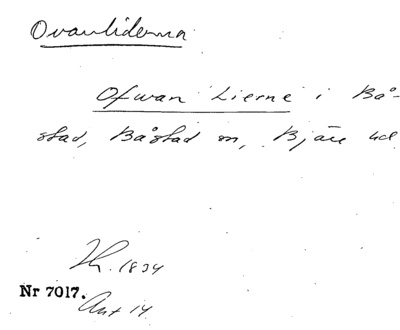 Ovanliderna
Ofwan Lierne i Bå-
stad, Båstad sn, Bjäre hd
Jh. 1834
Nr 7017.
Ant 14.